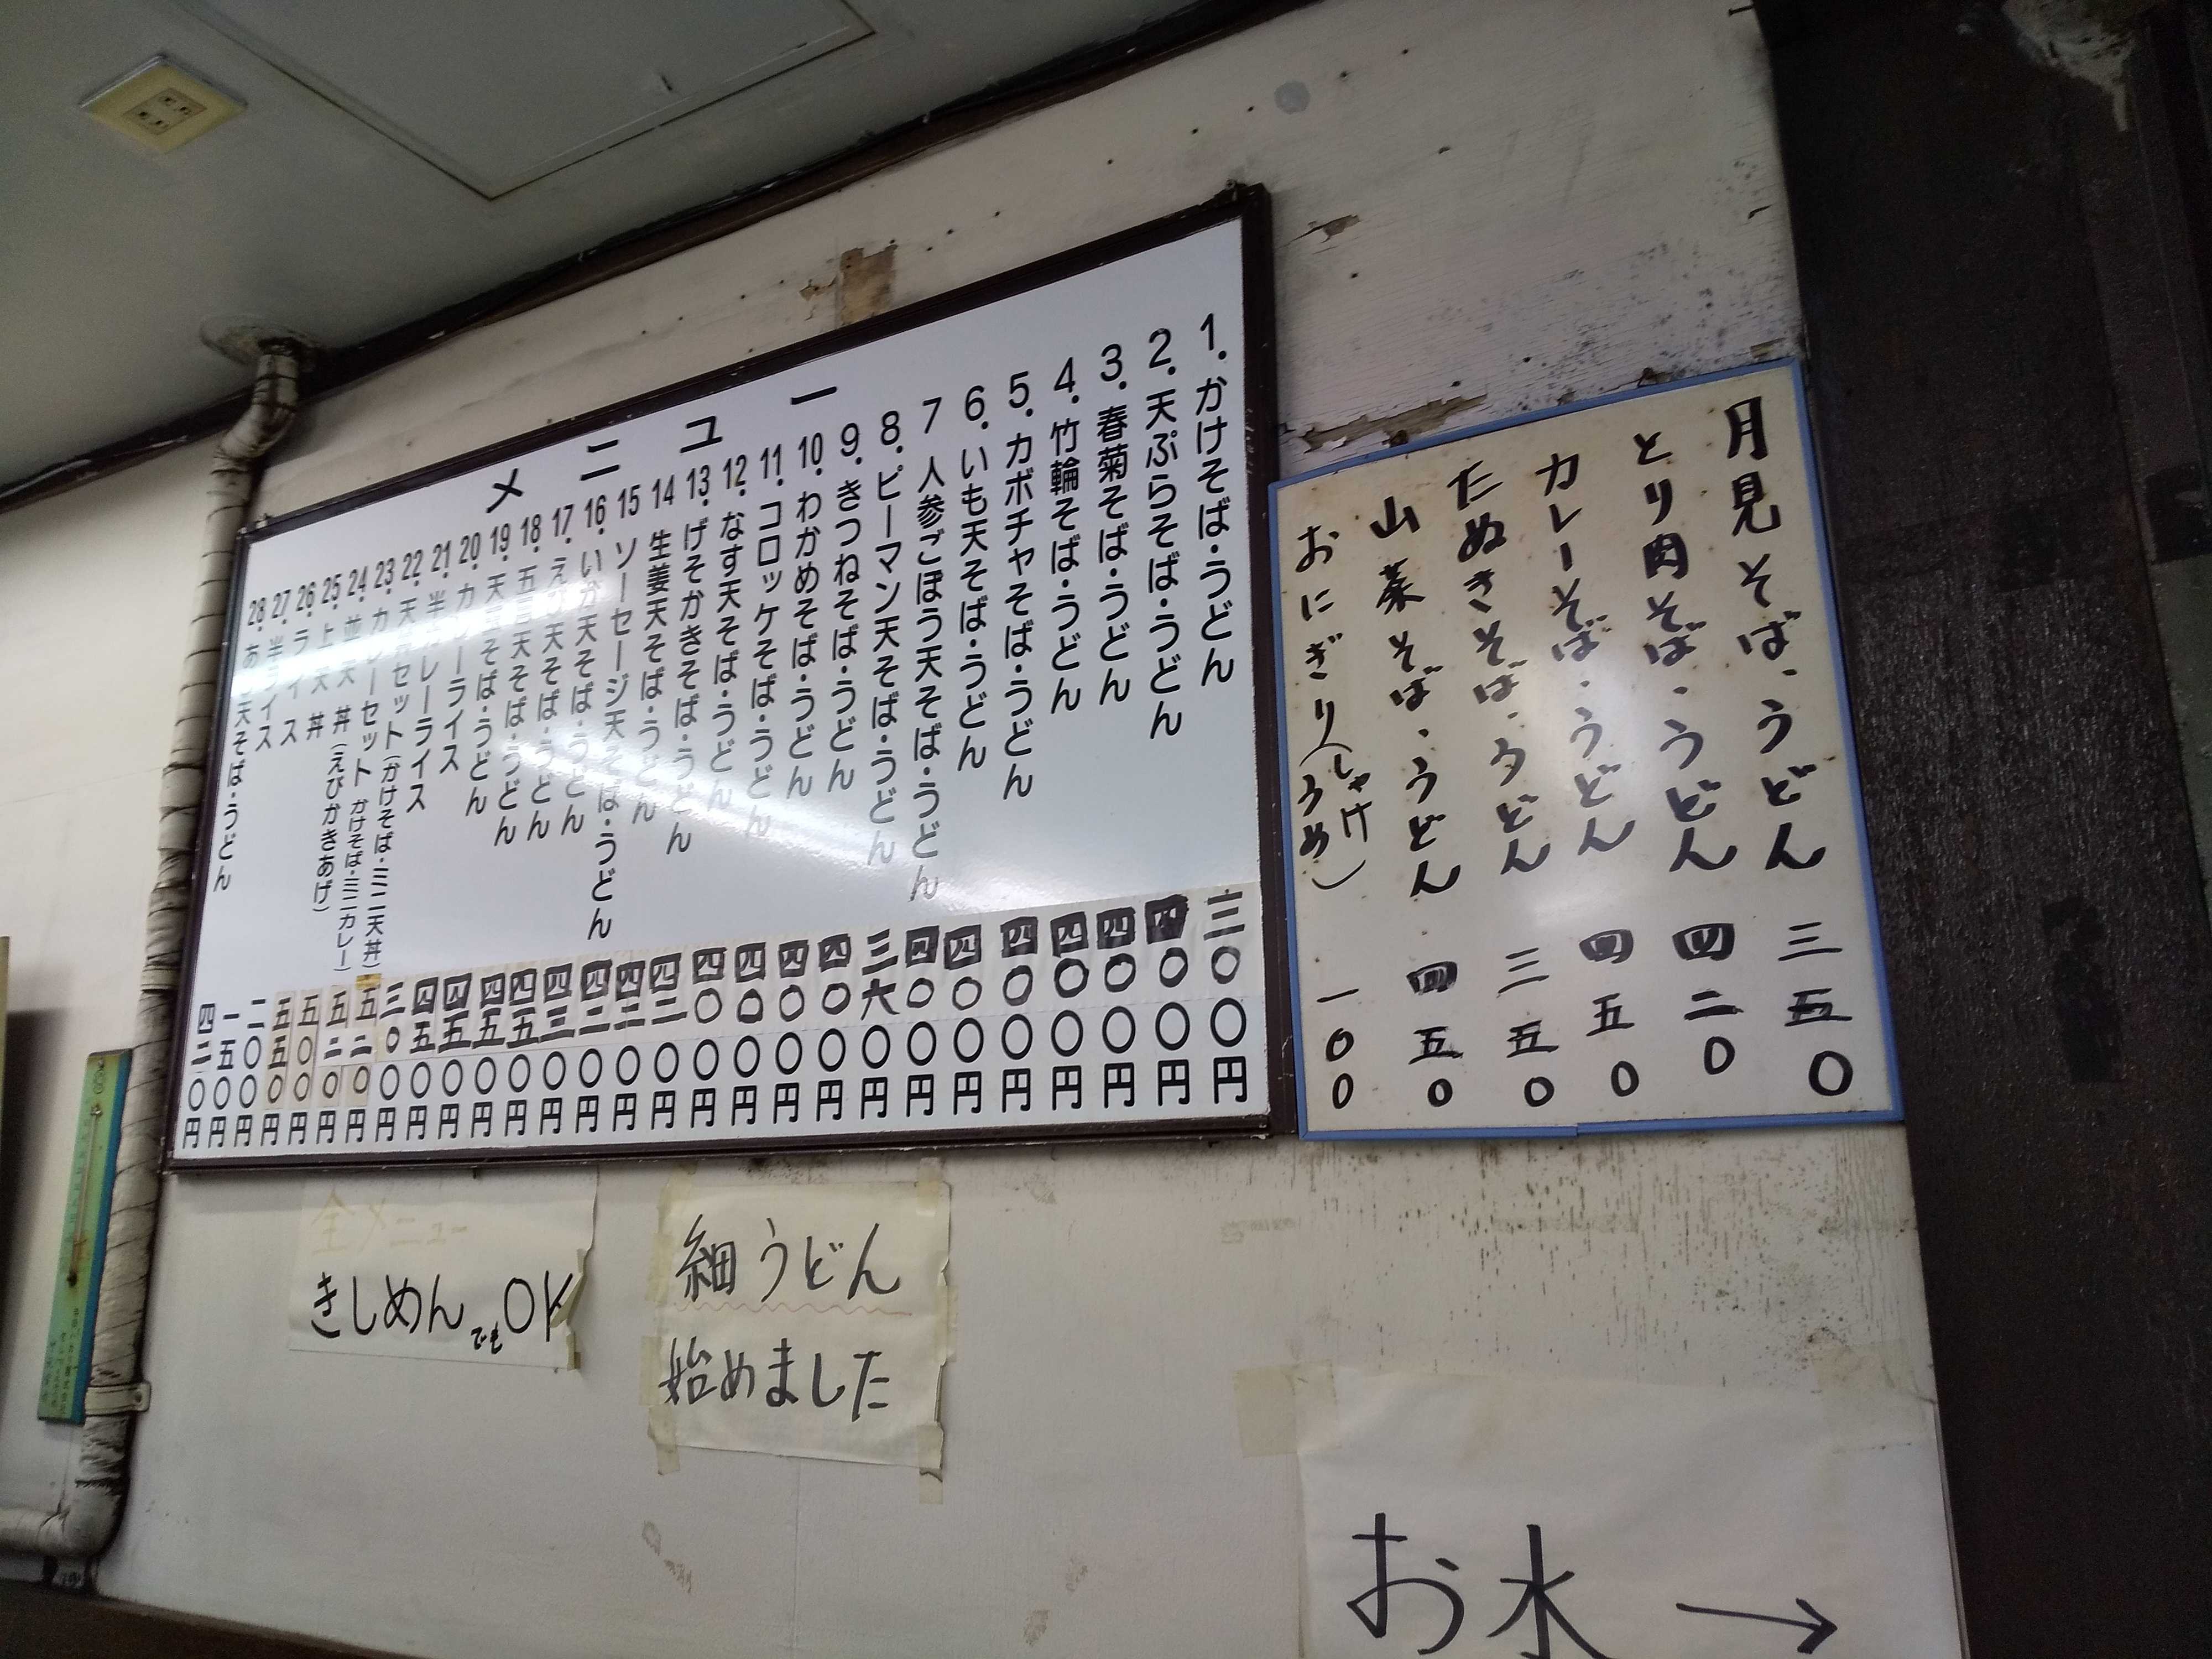 月見そば・うどん 三五〇
とり肉そば・うどん 四二〇
カレーそば・うどん 四五〇
たぬきそば・うどん 三五〇
山菜そば・うどん 四五〇
おにぎり(しゃけ うめ) 一〇〇
メニュー
1. かけそば・うどん 三〇〇円
2. 天ぷらそば・うどん 四〇〇円
3. 春菊そば・うどん 四〇〇円
4. 竹輪そば・うどん 四〇〇円
5. カボチャそば・うどん 四〇〇円
6. いも天そば・うどん 四〇〇円
7 人参ごぼう天そば・うどん 四〇〇円
8. ピーマン天そば・うどん 三六〇円
9. きつねそば・うどん 四〇〇円
10. わかめそば・うどん 四〇〇円
11. コロッケそば・うどん 四〇〇円
12. なす天そば・うどん 四〇〇円
13. げそかきそば・うどん 四二〇円
14 生姜天そば・うどん 四二〇円
15 ソーセージ天そば・うどん 四二〇円
16. いか天そば・うどん 四三〇円
17. えび天そば・うどん 四五〇円
18. 五目天そば・うどん 四五〇円
19. 天玉そば・うどん 四五〇円
20. カレーライス 四五〇円
21. 半カレーライス 三〇〇円
22. 天丼セット(かけそば・ミニ天丼) 五二〇円
23. カレーセット かけそば・ミニカレー) 五二〇円
24. 並天丼(えびかきあげ) 五〇〇円
25. 上天丼 五五〇円
26. ライス 二〇〇円
27. 半ライス 一五〇円
28. あじ天そば・うどん 四二〇円
全メニュー
きしめんでもOK
細うどん
始めました
お水→